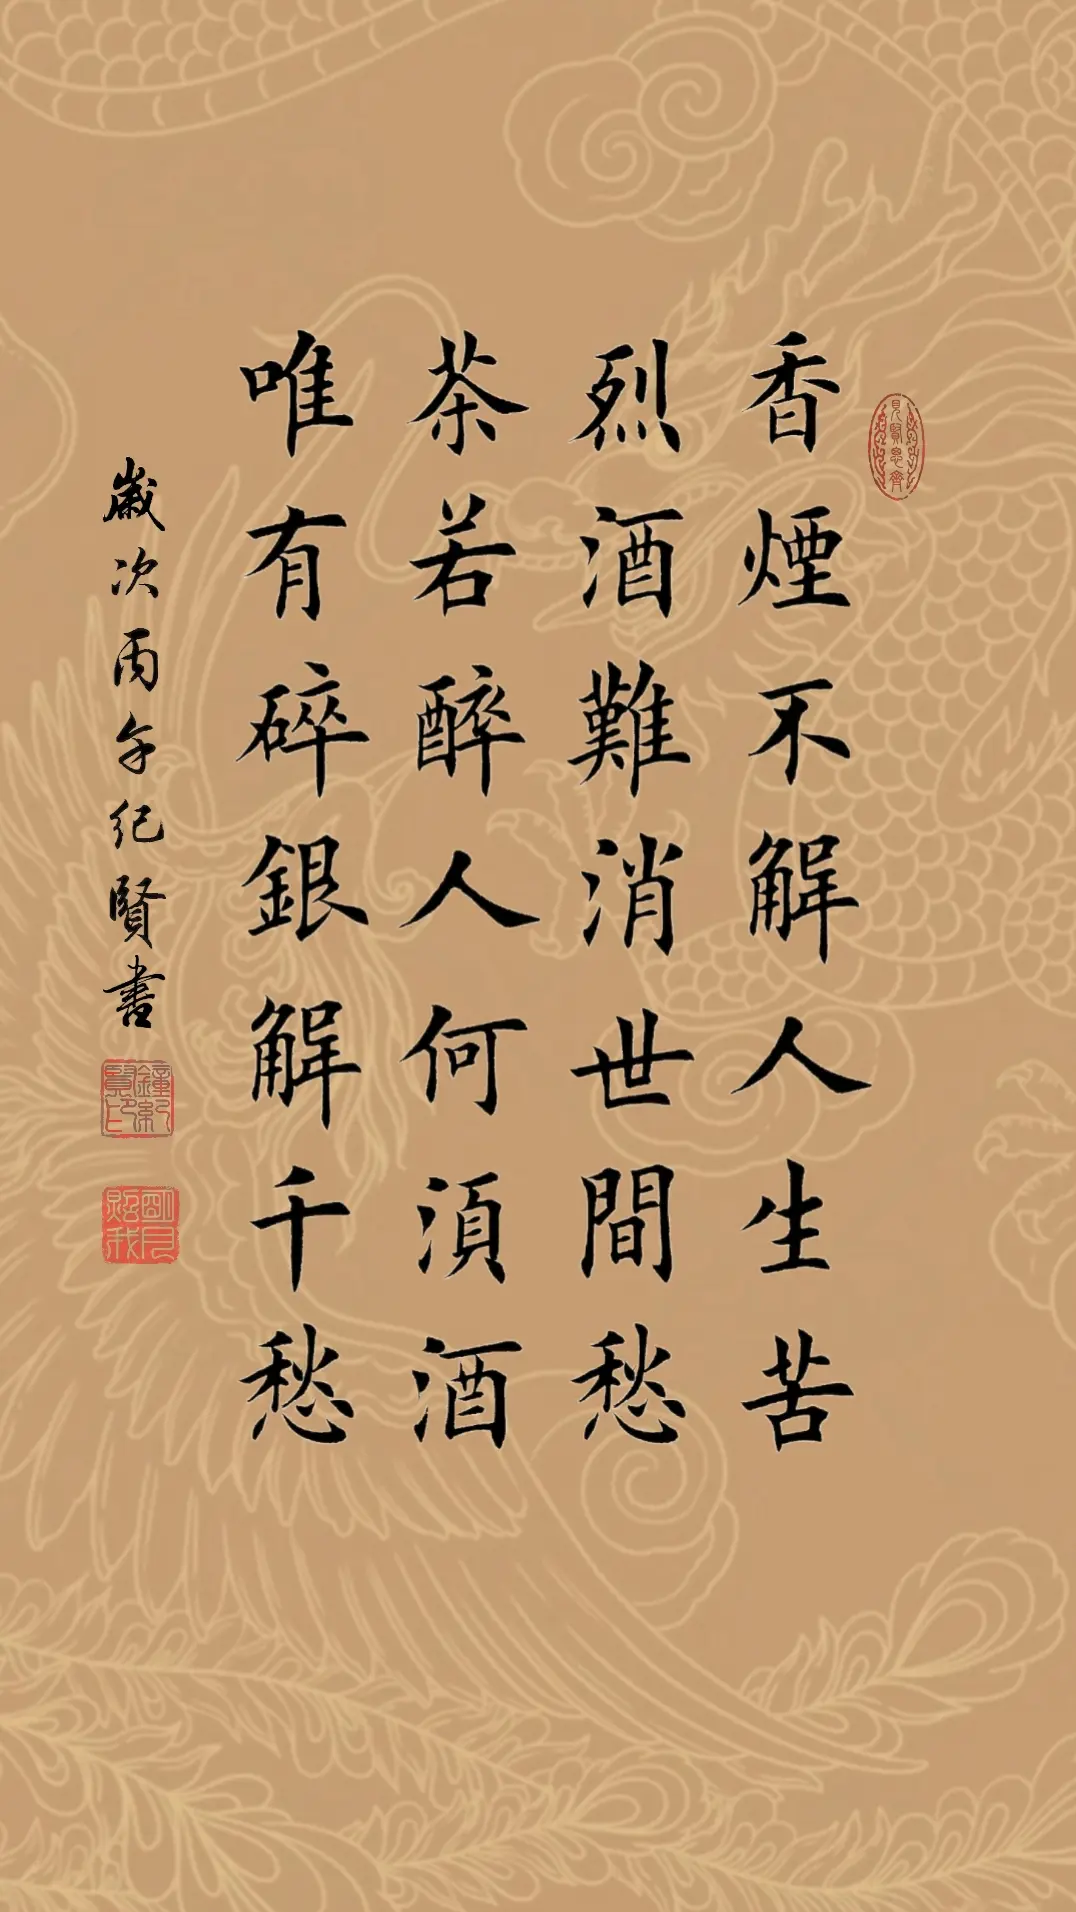 香煙不解人生苦
烈酒難消世間愁
茶若醉人何須酒
唯有碎銀解千愁
歲次丙午紀賢書
見賢思齊
鐘紀賢印